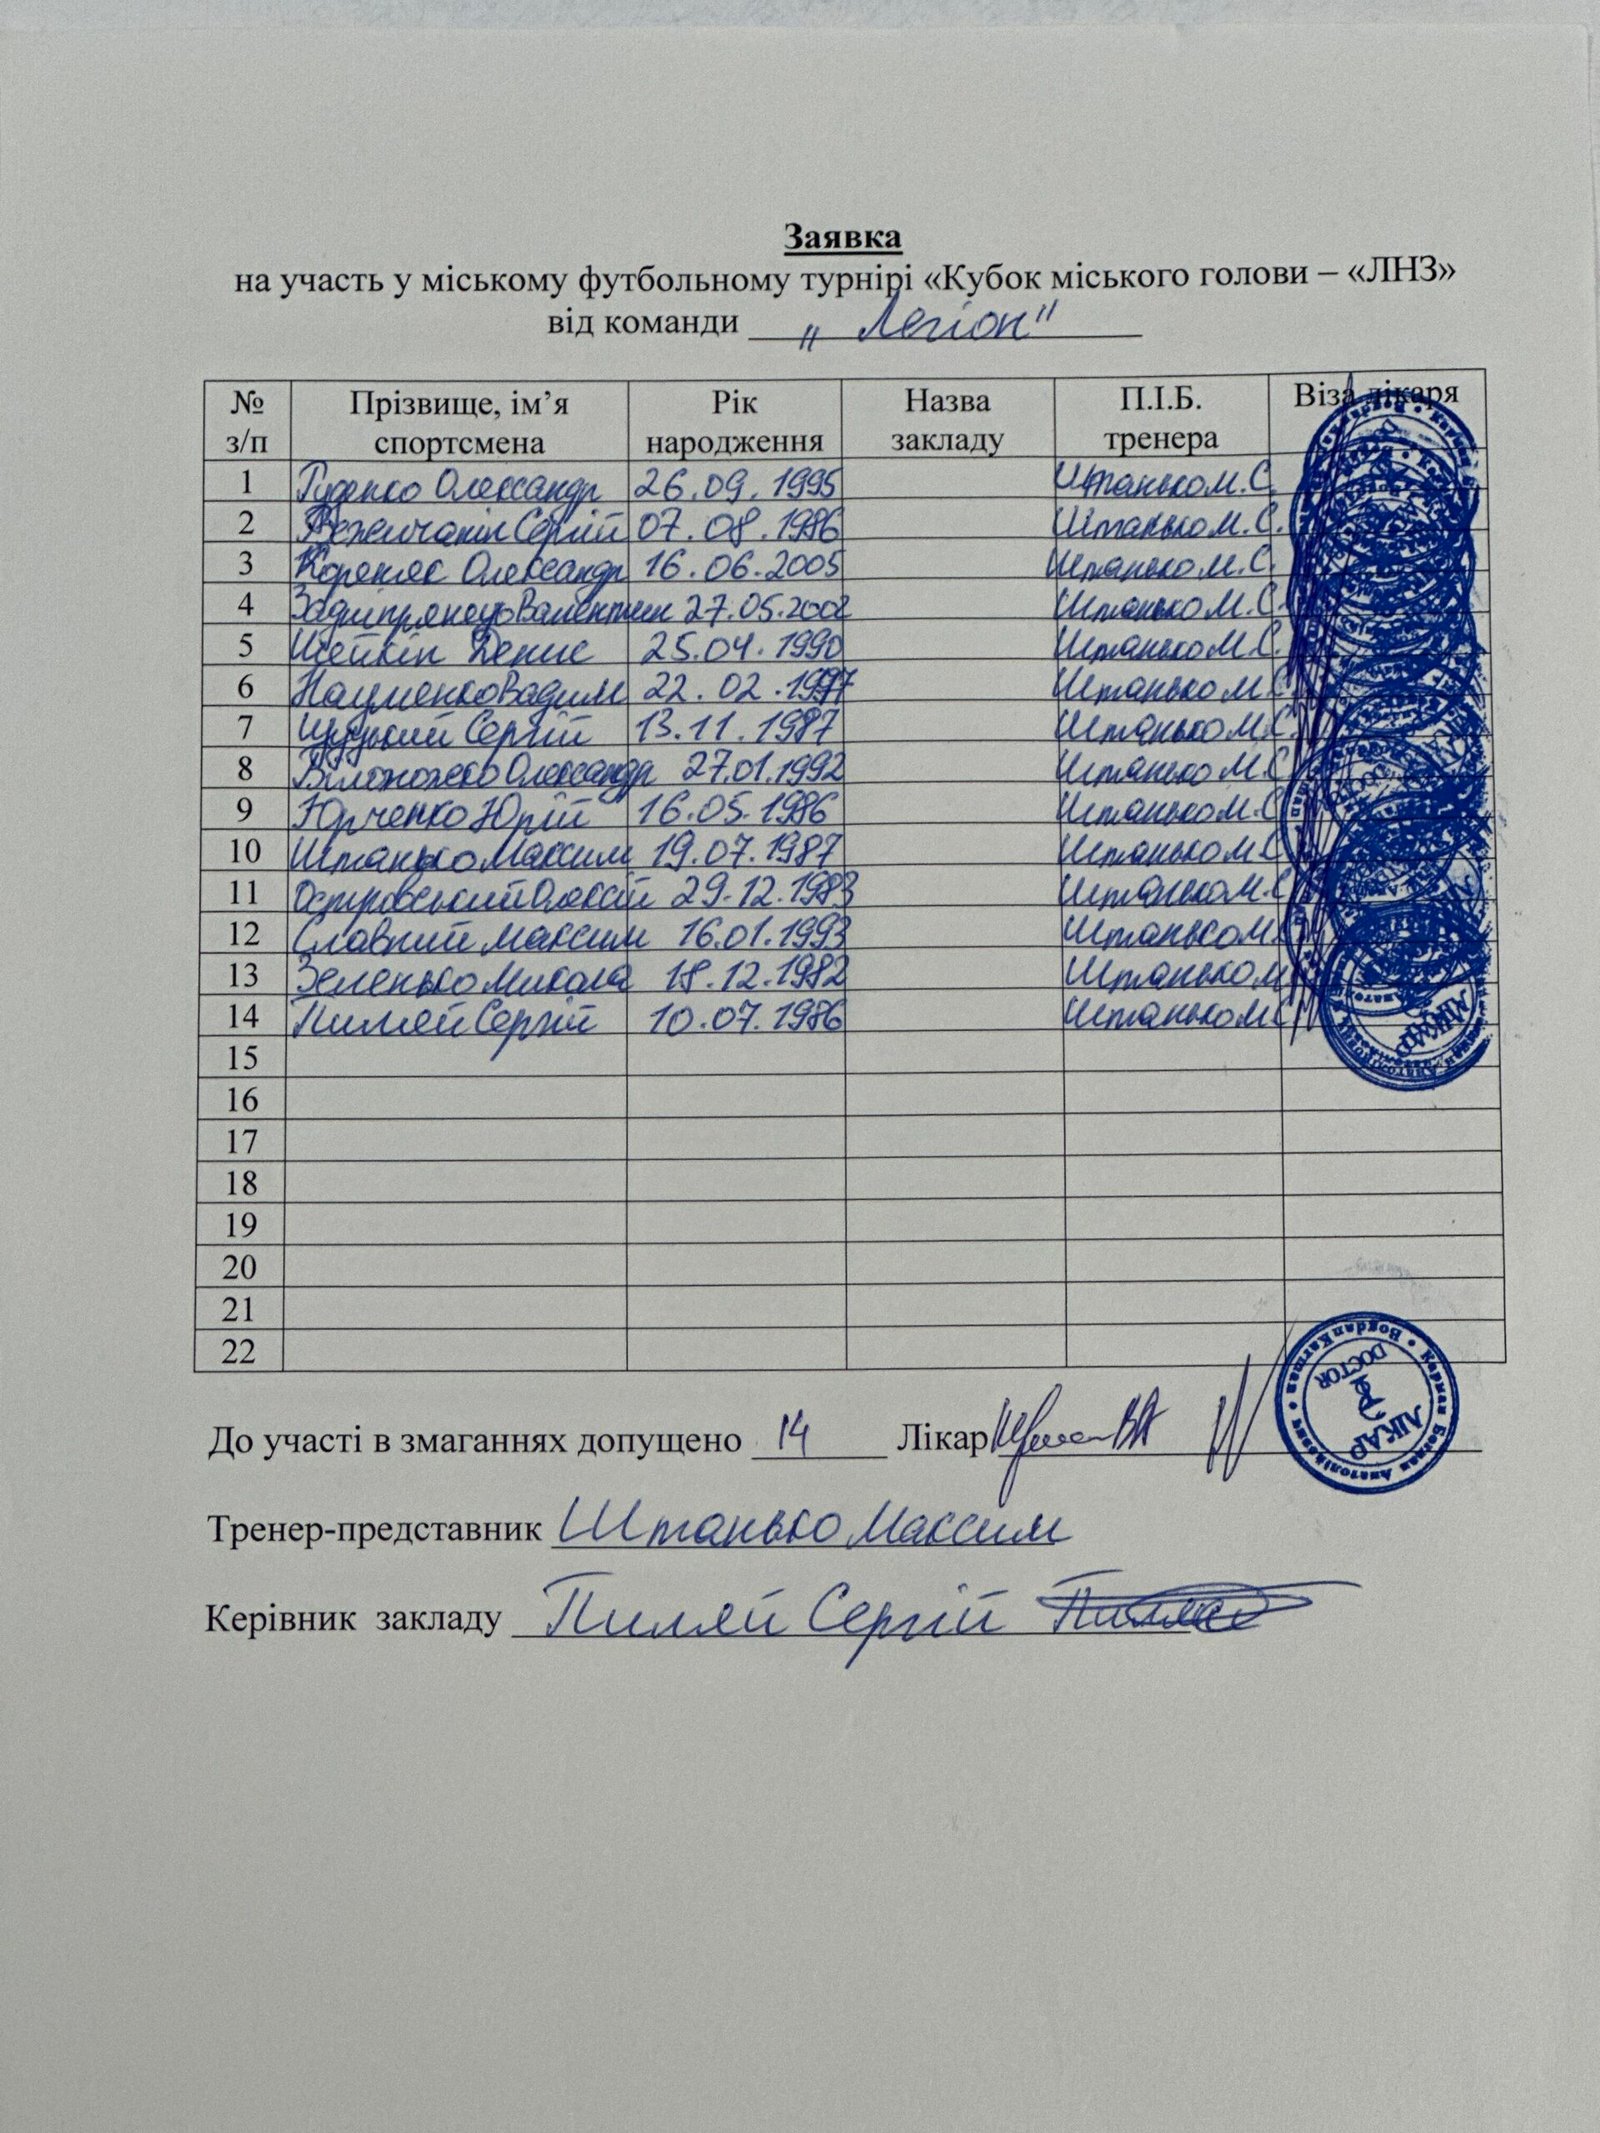 Заявка
на участь у міському футбольному турнірі «Кубок міського голови – «ЛНЗ»
від команди „Легіон"
№ з/п Прізвище, ім’я спортсмена Рік народження Назва закладу П.І.Б. тренера Віза лікаря
1 Руденко Олександр 26.09.1995 Штанько М.С.
2 Сергій 07.08.1986 Штанько М.С.
3 Кореняк Олександр 16.06.2005 Штанько М.С.
4 Валентин 27.05.2002 Штанько М.С.
5 Шейкін Денис 25.04.1990 Штанько М.С.
6 Науменко Вадим 22.02.1997 Штанько М.С
7 Сергій 13.11.1987 Штанько М.С.
8 Білоножко Олександр 27.01.1992 Штанько М.С
9 Юрченко Юрій 16.05.1986 Штанько М.С
10 Штанько Максим 19.07.1987 Штанько М.С
11 Островський Олексій 29.12.1983 Штанько М.С
12 Славний Максим 16.01.1993 Штанько М.
13 Зеленько Микола 18.12.1982 Штанько М
14 Пиляй Сергій 10.07.1986 Штанько М.С
15
16
17
18
19
20
21
22
До участі в змаганнях допущено 14 Лікар
Карман Богдан Анатолійович • Bogdan Karman •
DOCTOR
ЛІКАР
Тренер-представник Штанько Максим
Керівник закладу Пиляй Сергій